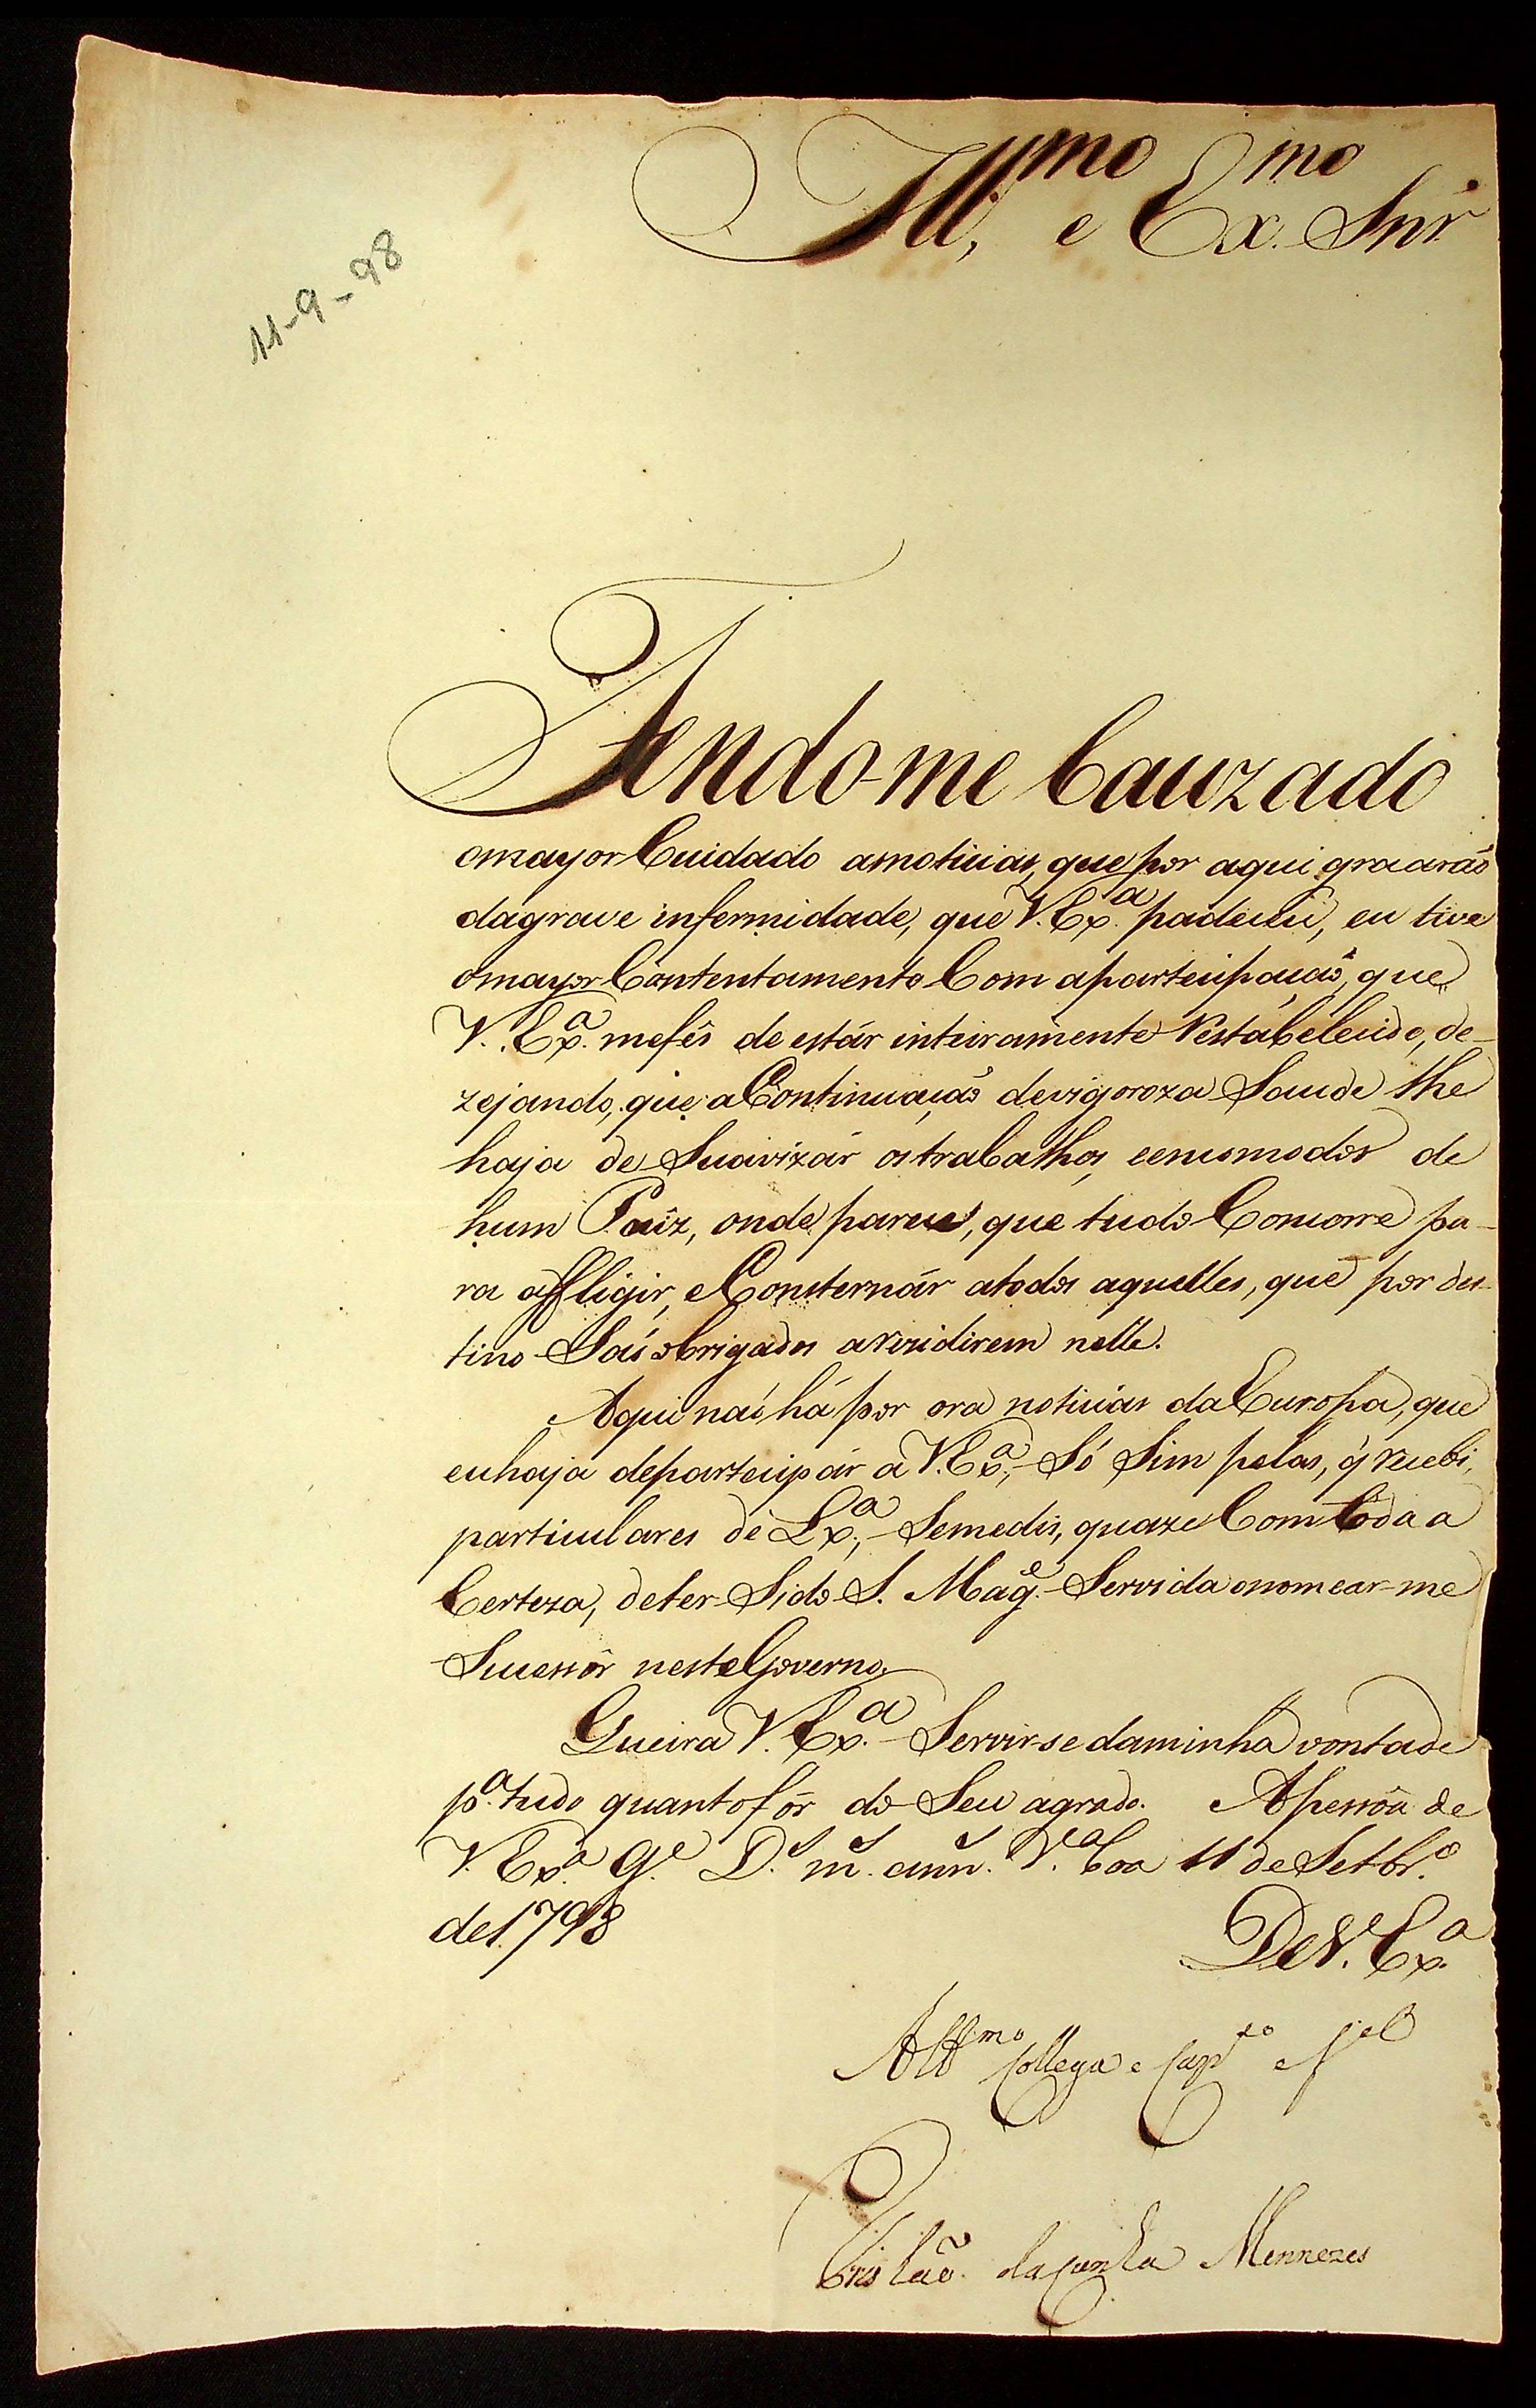 Ill.mo e Ex.mo Snr.
11-9-98
Tendo-me Cauzado
omayor Cuidado asnoticias, que por aqui graçaraõ
dagrave infermidade, que V. Ex.a padeceu, eu tive
omayor Contentamento Com aparteicipaçaõ, que
V. Ex.a mefês de estár inteiramente Restabelecido, de-
zejando, que aContinuaçaõ devigoroza Saude lhe
haja de Suavizár ostrabalhos, eencomodos de
hum Paîz, onde parece, que tudo Concorre pa-
ra affligir, eConsternár atodos aquelles, que por des-
tino Saõ obrigados aRezidirem nelle.
Aqui naõ há por ora noticias daEuropa, que
euhaja departeicipár a V. Ex.a; Só Sim pelas, q̃ recebi,
particulares de Lx.a; Semedis, quaze Com toda a
Certeza, deter Sido S. Mag.e Servida onomear-me
Sucessôr nesteGoverno.
Queira V. Ex.a Servir-se daminha vontade
p.a tudo quanto fôr do Seu agrado. Apessôa de
V. Ex.a G.e D.s m.s ann.s V.a Boa 11 de Setbr.o
de1798
DeV. Ex.a
Att.mo Collega e Cap.to e F.el
Tristaõ daCunha Mennezes